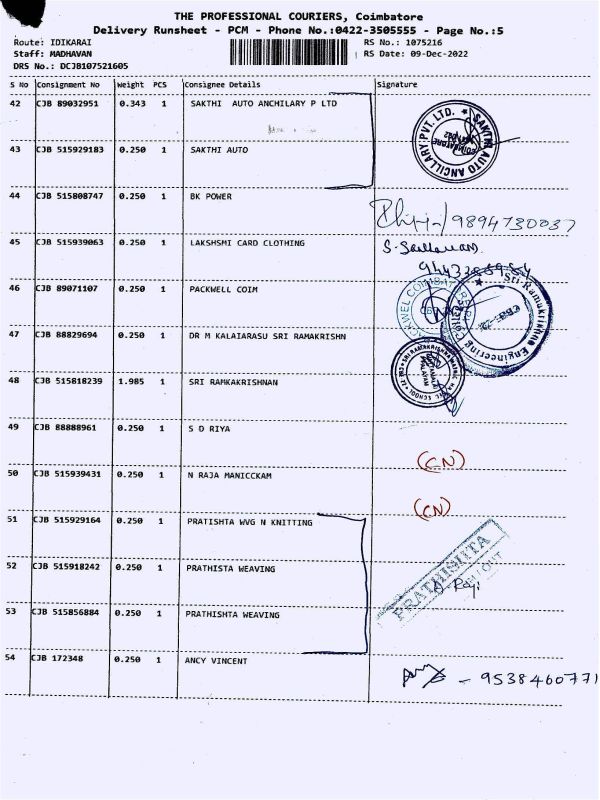 THE PROFESSIONAL COURIERS, Coimbatore
Delivery Runsheet - PCM - Phone No.:0422-3505555 - Page No.:5
Route: IDIKARAI RS No.: 1075216
Staff: MADHAVAN RS Date: 09-Dec-2022
DRS No.: DCJB107521605
S No Consignment No Weight PCS Consignee Details Signature
42 CJB 89032951 0.343 1 SAKTHI AUTO ANCHILARY P LTD
SAKTHI AUTO ANCILLARY PVT. LTD.
43 CJB 515929183 0.250 1 SAKTHI AUTO
44 CJB 515808747 0.250 1 BK POWER
9894730037
45 CJB 515939063 0.250 1 LAKSHSMI CARD CLOTHING
46 CJB 89071107 0.250 1 PACKWELL COIM
Sri Ramakrishna Engineering
47 CJB 88829694 0.250 1 DR M KALAIARASU SRI RAMAKRISHN
48 CJB 515818239 1.985 1 SRI RAMKAKRISHNAN
49 CJB 88888961 0.250 1 S D RIYA
(CN)
50 CJB 515939431 0.250 1 N RAJA MANICCKAM
(CN)
51 CJB 515929164 0.250 1 PRATISHTA WVG N KNITTING
52 CJB 515918242 0.250 1 PRATHISTA WEAVING
PRATHISHTA
53 CJB 515856884 0.250 1 PRATHISHTA WEAVING
54 CJB 172348 0.250 1 ANCY VINCENT
- 9538460771